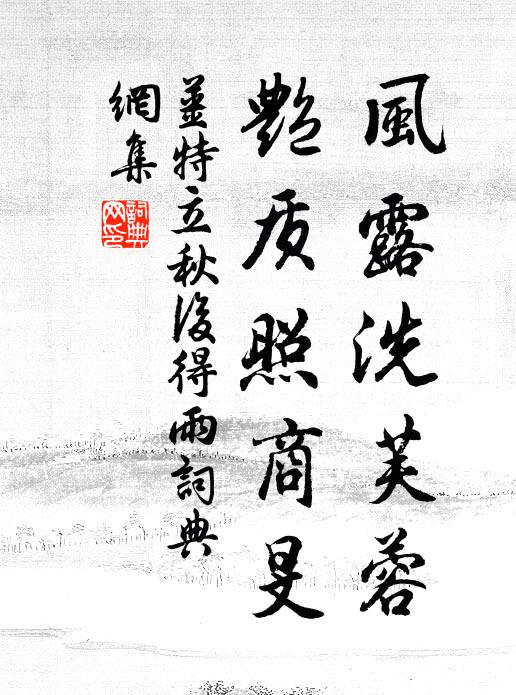 風露洗芙蓉
艷质照商旻
姜特立秋後得雨詞典
網集
詞典
网印